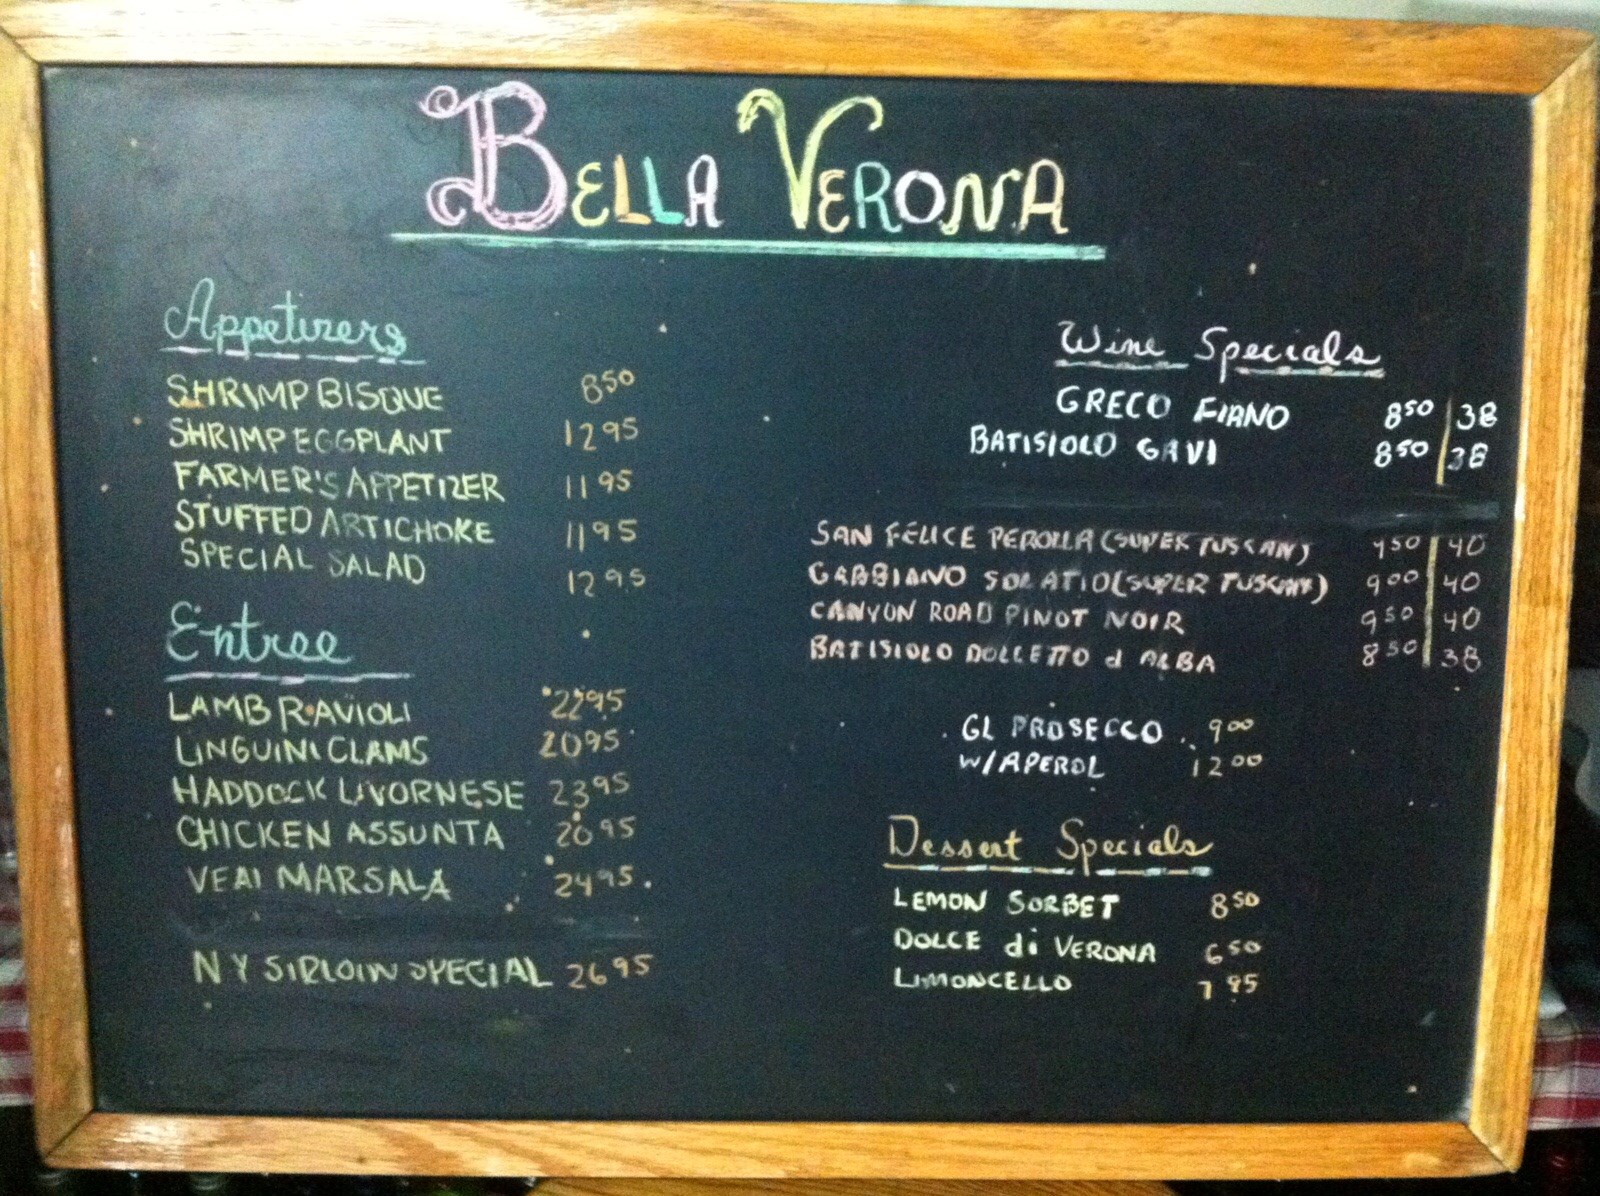 BELLA VERONA
Appetizers
SHRIMP BISQUE 8 50
SHRIMP EGGPLANT 12 95
FARMER'S APPETIZER 11 95
STUFFED ARTICHOKE 11 95
SPECIAL SALAD 12 95
Entree
LAMB RAVIOLI 22 95
LINGUINI CLAMS 20 95
HADDOCK LIVORNESE 23 95
CHICKEN ASSUNTA 20 95
VEAL MARSALA 24 95
NY SIRLOIN SPECIAL 26 95
Wine Specials
GRECO FIANO 8 50 | 38
BATISIOLO GAVI 8 50 | 38
SAN FELICE PEROLLA (SUPER TUSCAN) 9 50 | 40
GABBIANO SOLATIO (SUPER TUSCAN) 9 00 | 40
CANYON ROAD PINOT NOIR 9 50 | 40
BATISIOLO DOLCETTO d ALBA 8 50 | 38
GL PROSECCO 9 00
W/APEROL 12 00
Dessert Specials
LEMON SORBET 8 50
DOLCE di VERONA 6 50
LIMONCELLO 7 95